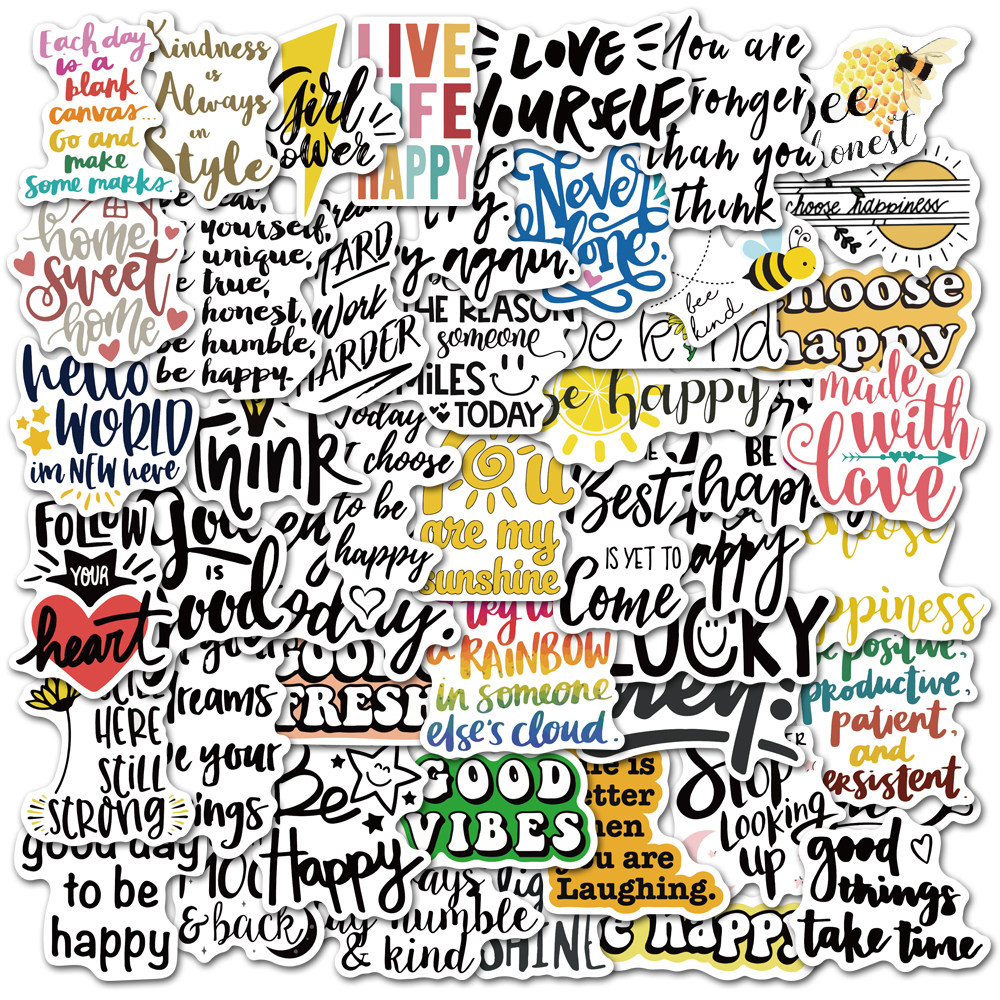 Each day
is a
blank
canvas...
Go and
make
some marks.
Kindness
is
Always
in
Style
Girl
Power
LIVE
LIFE
HAPPY
LOVE
YOURSELF
You are
ronger
than you
think
Bee
honest
choose happiness
home
sweet
home
be yourself,
unique,
true,
honest,
be humble,
be happy.
HARD
WORK
HARDER
try.
again.
Never
alone.
bee
kind
be kind
choose
happy
hello
WORLD
im NEW here
Think
THE REASON
someone
SMiLES
TODAY
Today
I choose
to be
happy
be happy
BE
happy
made
with
love
YOU
are my
sunshine
THE
Best
IS YET TO
Come
happy
choose
happiness
FOLLOW
YOUR
heart
IS
good
today.
try to
a RAINBOW
in someone
else's cloud.
LUCKY
hey!
be positive,
productive,
patient,
and
persistent.
STILL
HERE
STILL
STRONG
your
dreams
your
FRESH
Be
Happy
GOOD
VIBES
is
etter
hen
you are
Laughing.
STOP
LOOKING
UP
good
things
take time
good day
to be
happy
&back
humble
& kind
SHINE
be happy